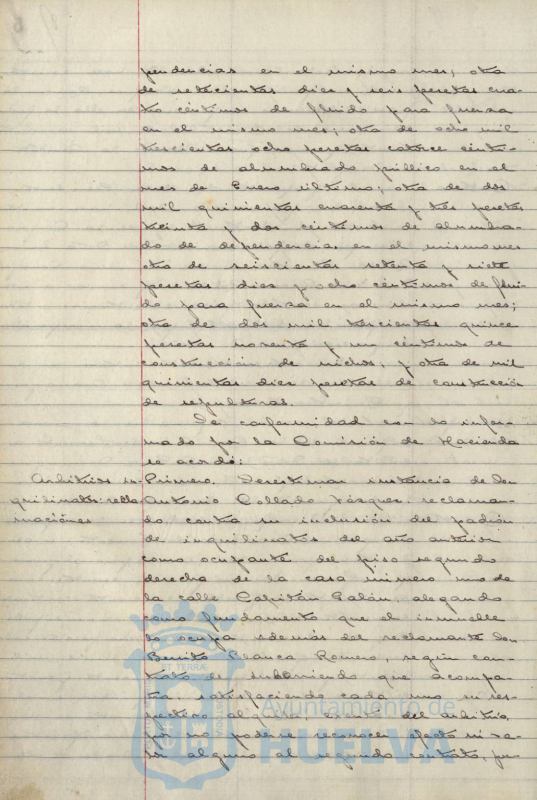 pendencias en el mismo mes; otra
de setecientas diez y seis pesetas cua-
tro céntimos de fluido para fuerza
en el mismo mes; otra de ocho mil
trescientas ocho pesetas catorce cénti-
mos de alumbrado público en el
mes de Enero último; otra de dos
mil quinientas cuarenta y tres pesetas
treinta y dos céntimos de alumbra-
do de dependencias en el mismo mes
otra de seiscientas setenta y siete
pesetas diez y ocho céntimos de flui-
do para fuerza en el mismo mes;
otra de dos mil trescientas quince
pesetas noventa y un céntimos de
construcción de nichos; y otra de mil
quinientas diez pesetas de construcción
de sepulturas.
De conformidad con lo infor-
mado por la Comisión de Hacienda
se acordó:
Arbitrios in-
quilinatos: recla-
maciónes
Primero. Desestimar instancia de Don
Antonio Collado Vázquez, reclaman-
do contra su inclusión del padrón
de inquilinatos del año anterior
como ocupante del piso segundo
derecha de la casa número uno de
la calle Capitán Galán, alegando
como fundamento que el inmueble
lo ocupa además del reclamante Don
Benito Blanca Romero, según con-
trato de subarriendo que acompa-
ña satisfaciendo cada uno su res-
pectivo alquiler, exento del arbitrio,
por no poderse reconocer efecto ni va-
lor alguno al segundo contrato, pu-
Ayuntamiento de
HUELVA